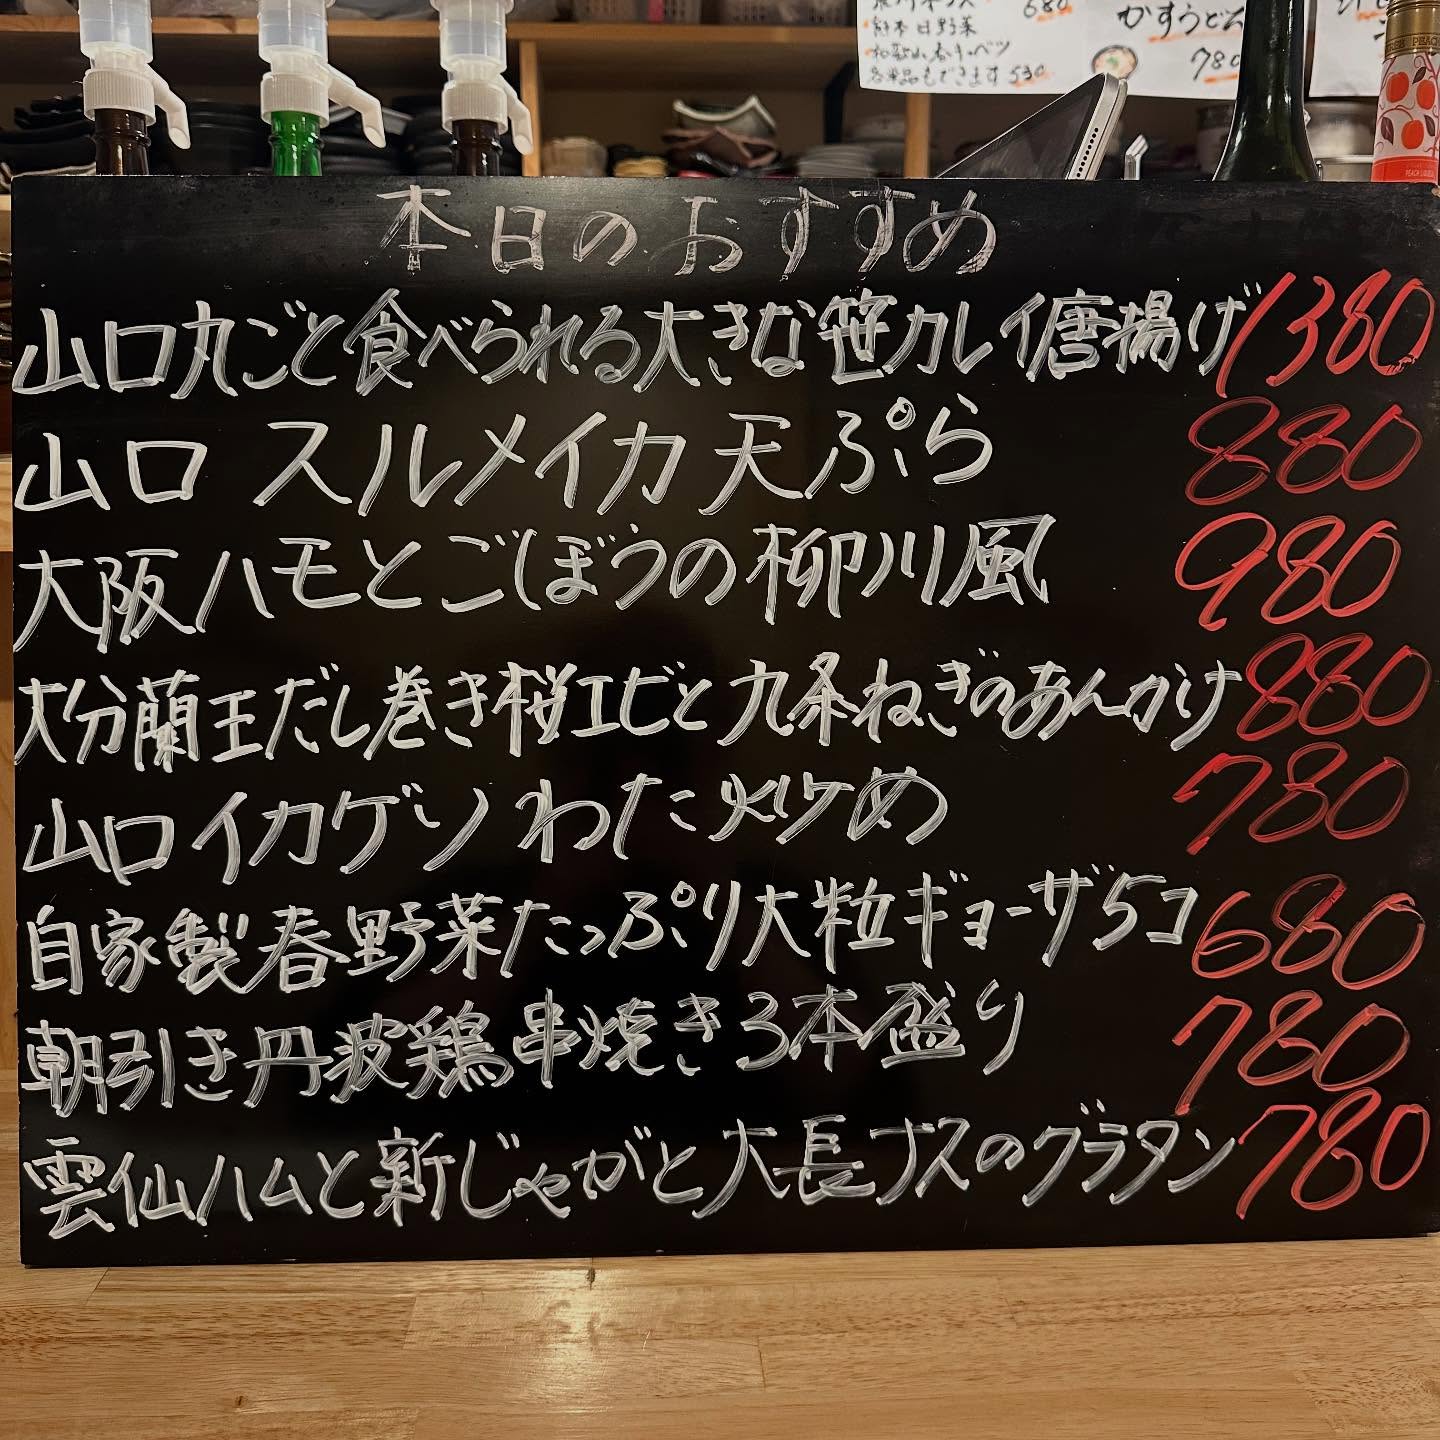 680
熊本 日野菜
和歌山 春キャベツ
各単品もできます 530
かすうどん
780
PEACH
本日のおすすめ
山口丸ごと食べられる大きな笹カレイ唐揚げ 1380
山口 スルメイカ天ぷら 880
大阪ハモとごぼうの柳川風 980
大分蘭王だし巻き桜エビと九条ねぎのあんかけ 880
山口イカゲソわた炒め 780
自家製春野菜たっぷり大粒ギョーザ5コ 680
朝引き丹波鶏串焼き3本盛り 780
雲仙ハムと新じゃがと大長ナスのグラタン 780